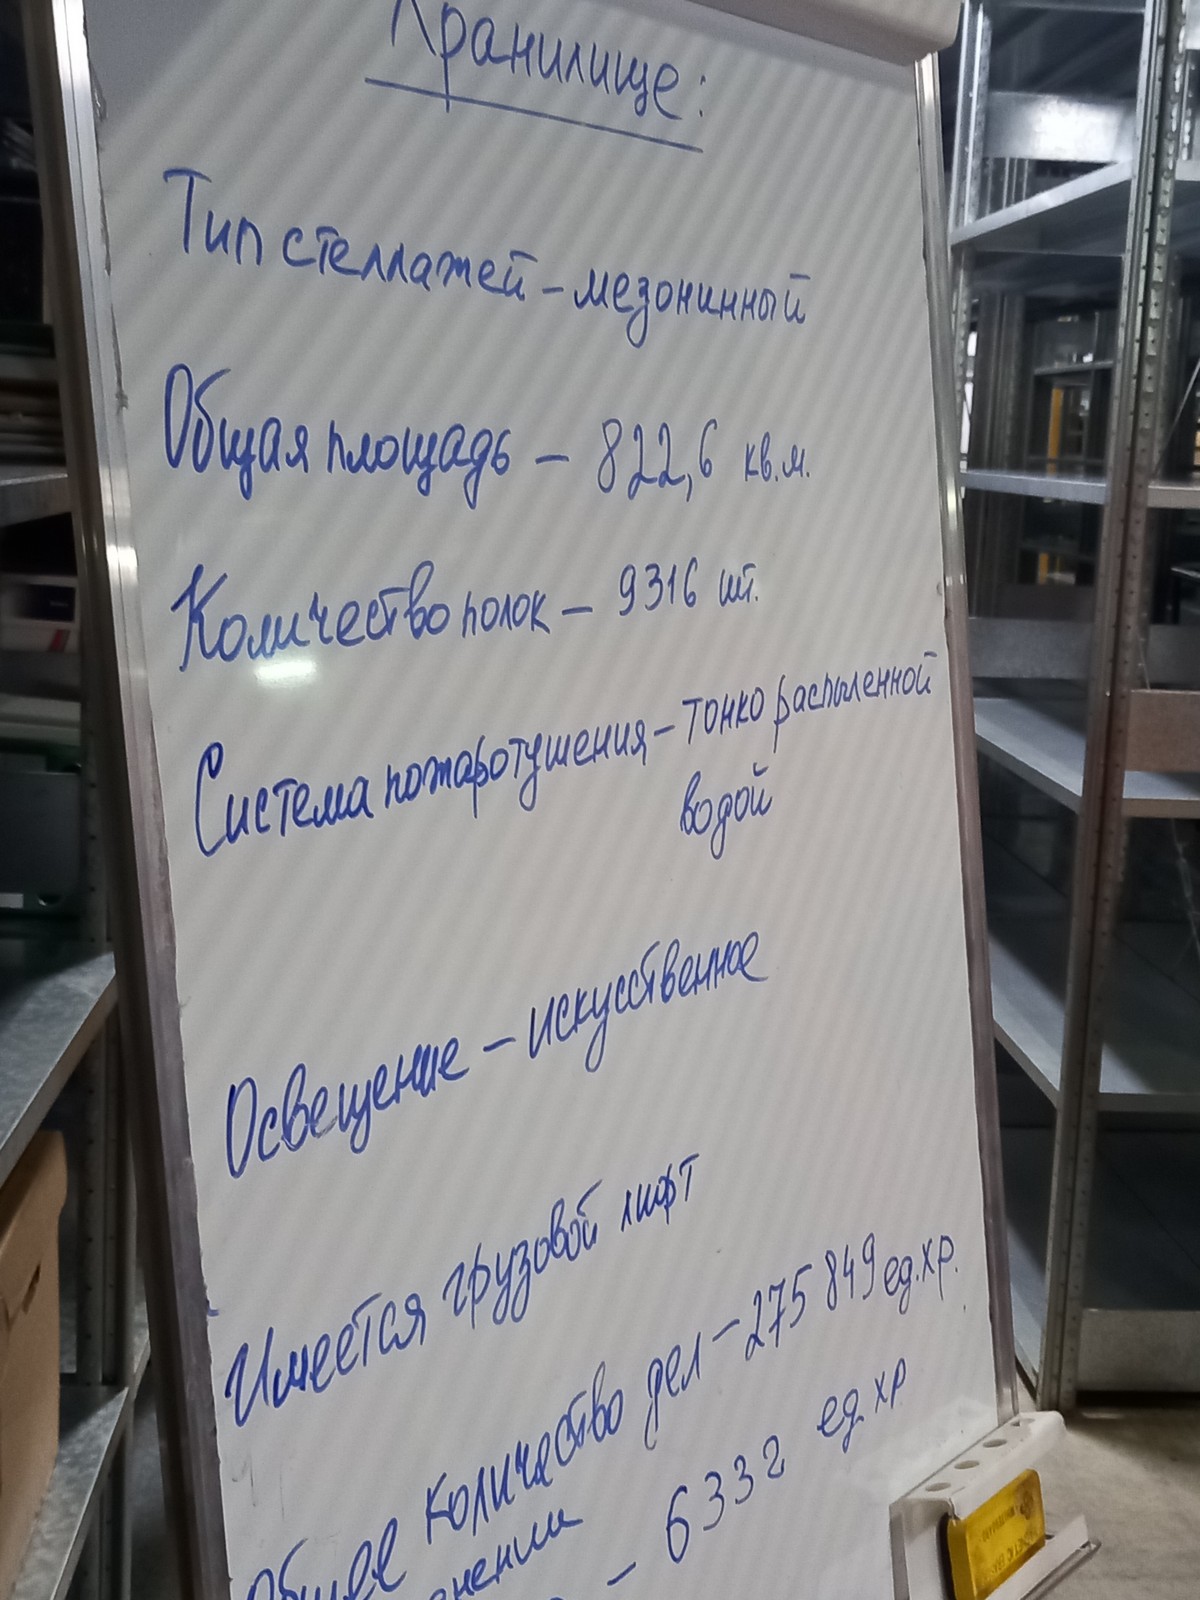 Хранилище:
Тип стеллажей – мезонинный
Общая площадь – 822,6 кв.м.
Количество полок – 9316 шт.
Система пожаротушения – тонко распыленной
водой
Освещение – искусственное
Имеется грузовой лифт
Общее количество дел – 275 849 ед.хр.
– 6332 ед хр